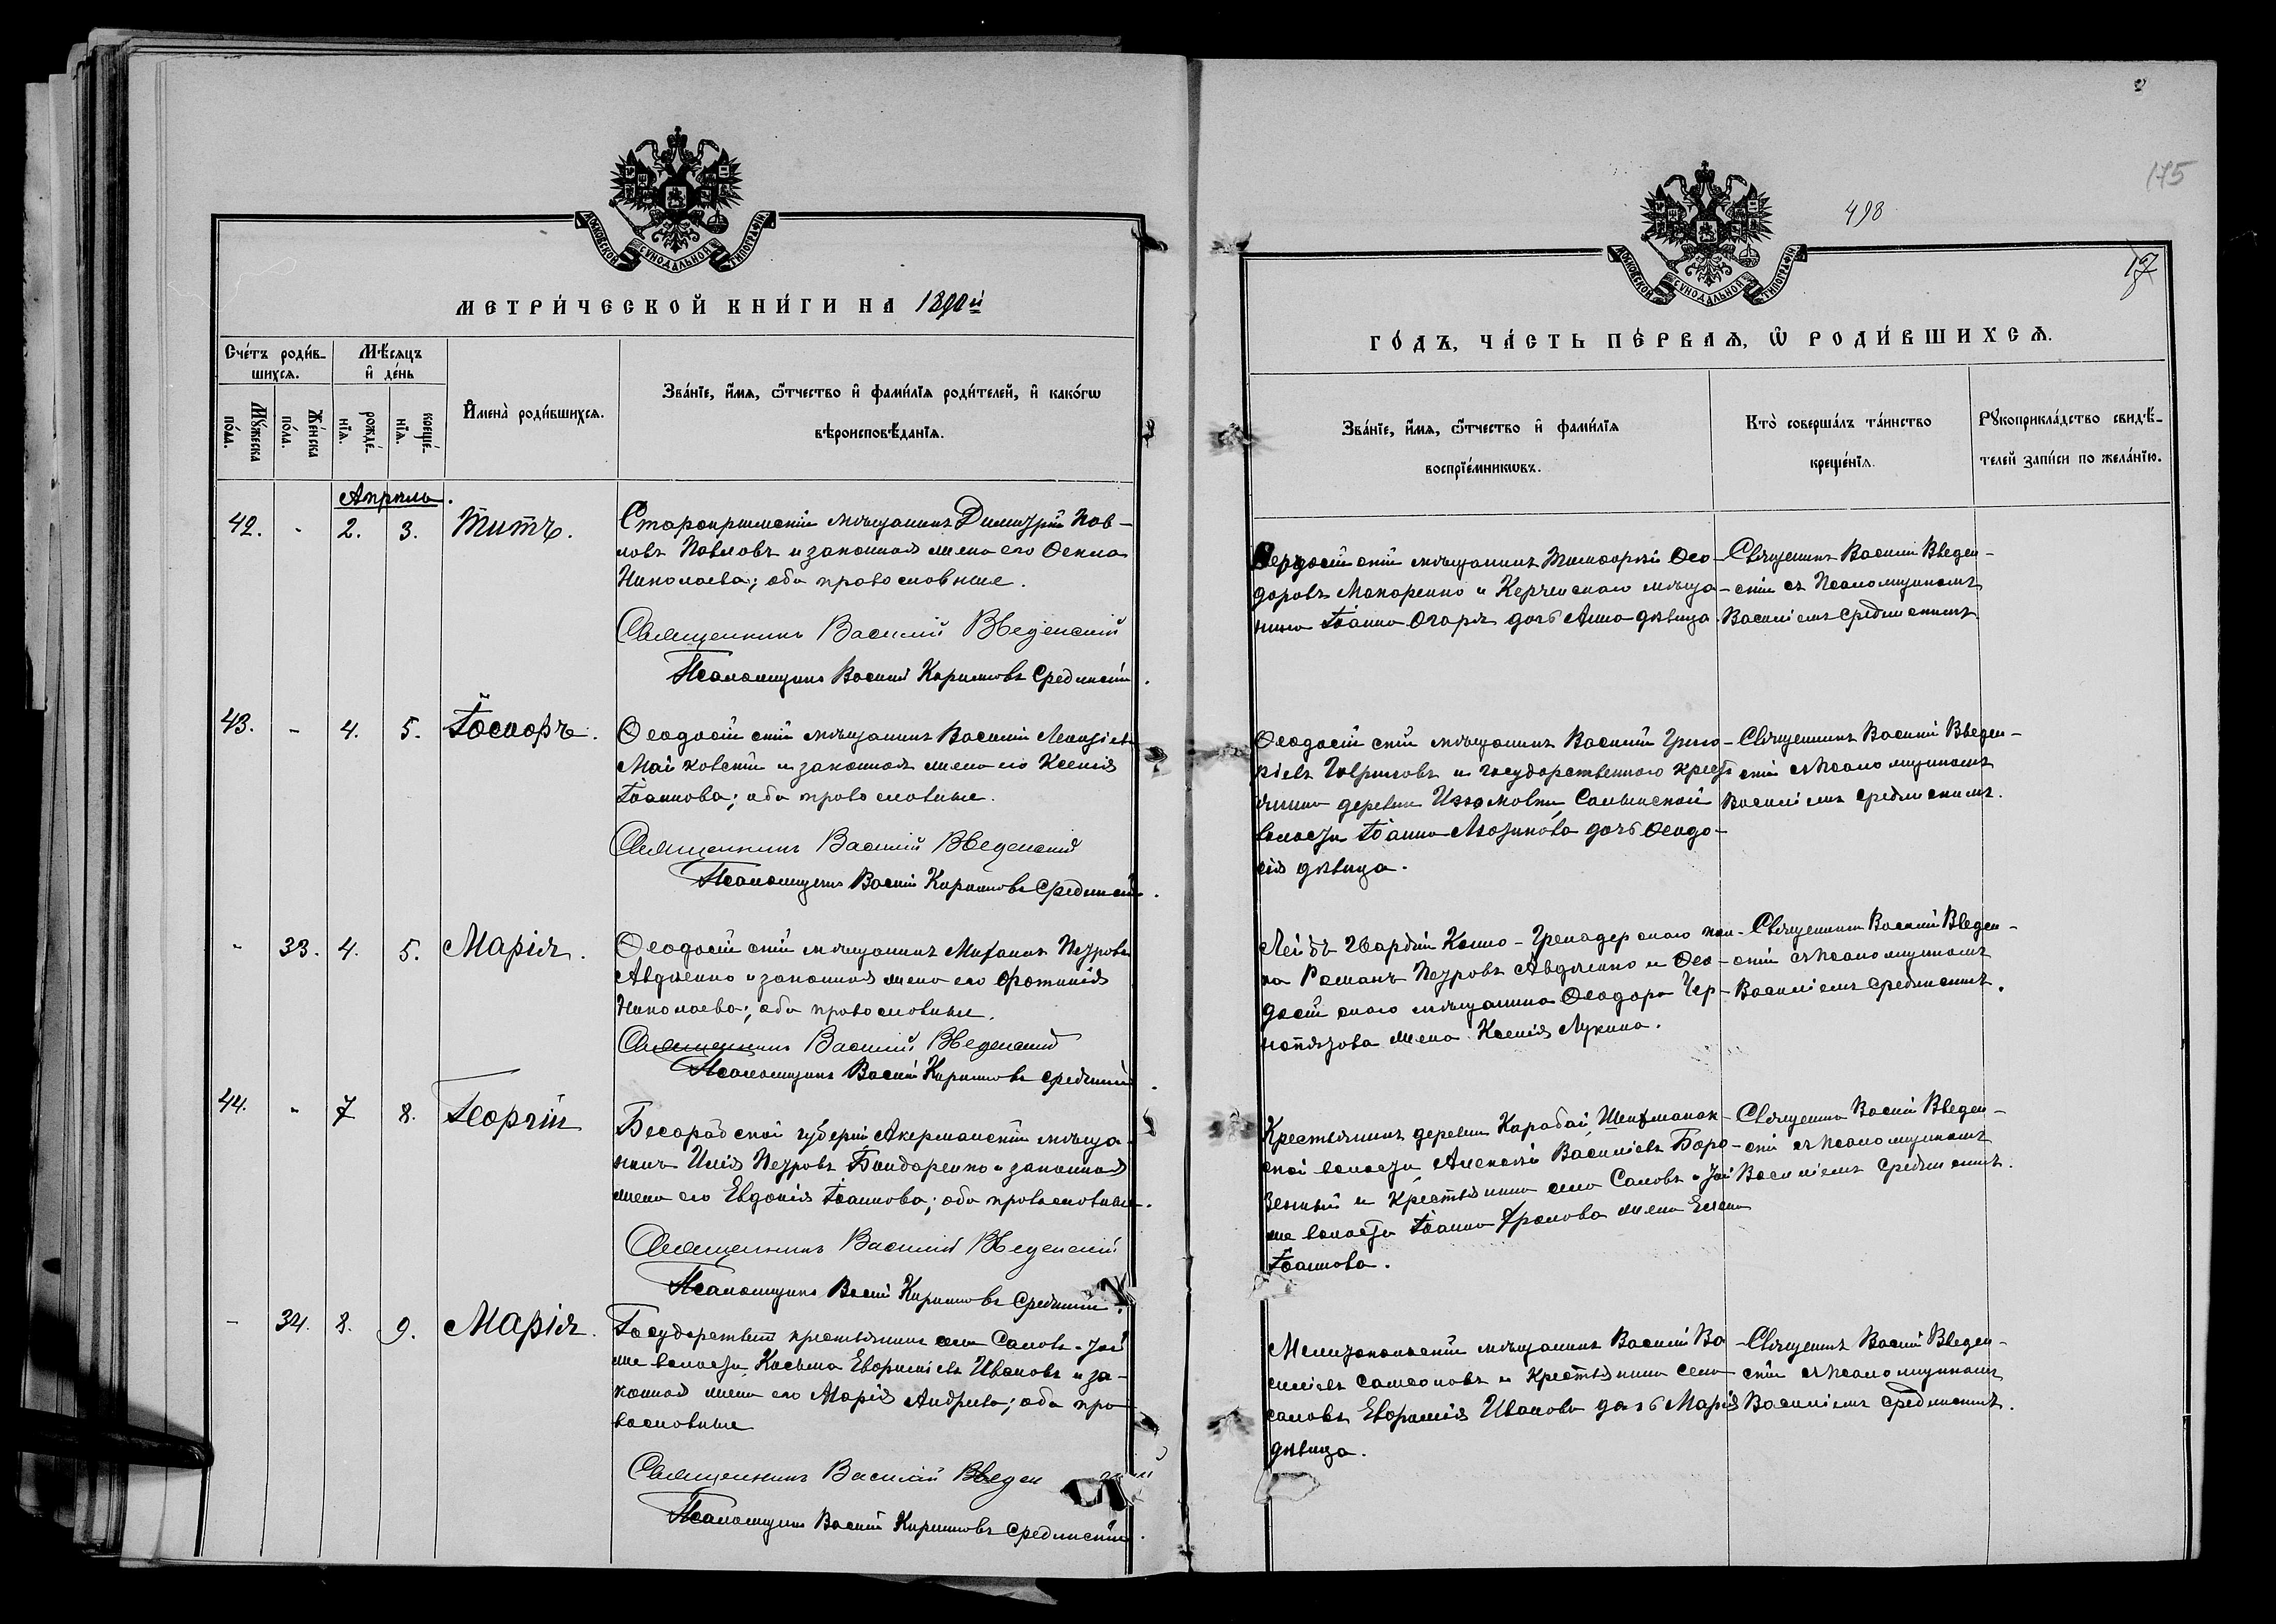 МОСКОВСКОЙ СУНОДАЛЬНОЙ ТИПОГРАФІИ
МЕТРИ́ЧЕСКОЙ КНИ́ГИ НА 1890й
Сче́тъ роди́в-
шихсѧ.
Мѣ́сяцъ
и҆ де́нь
Мꙋ́жеска
по́ла.
Же́нска
по́ла.
рожде́-
нїѧ.
креще́-
нїѧ.
И҆мена̀ роди́вшихсѧ.
Зва́нїе, и҆́мѧ, ѻ҆́тчество и҆ фами́лїѧ роди́телей, и҆ како́гѡ
вѣроисповѣ́данїѧ.
Апрѣль.
42. - 2. 3. Титъ.
Старокрымскій мѣщанинъ Димитрій Пав-
ловъ Павловъ и законная жена его Ѳекла
Николаева; оба православные.
Священникъ Василій Введенскій
Псаломщикъ Василій Кирилловъ Срединскій.
43. - 4. 5. Іосифъ.
Ѳеодосійскій мѣщанинъ Василій
Майковскій и законная жена его Ксенія
Іоаннова; оба православные.
Священникъ Василій Введенскій
Псаломщикъ Василій Кирилловъ Срединскій.
- 33. 4. 5. Марія.
Ѳеодосійскій мѣщанинъ Михаилъ Петровъ
Авдѣенко и законная жена его Фотинія
Николаева; оба православные.
Священникъ Василій Введенскій
Псаломщикъ Василій Кирилловъ Срединскій.
44. - 7 8. Георгій
Бесарабской губерніи Акерманскій мѣща-
нинъ Илія Петровъ Бондаренко и законная
жена его Евдокія Іоаннова; оба православные.
Священникъ Василій Введенскій
Псаломщикъ Василій Кирилловъ Срединскій.
- 34. 8. 9. Марія.
Государствен крестьянинъ села Саловъ, той
же волости, Косьма Евфиміевъ Ивановъ и за-
конная жена его Марія Андреева; оба пра-
вославные
Священникъ Василій Введен
Псаломщикъ Василій Кирилловъ Срединскій.
175
498
17
МОСКОВСКОЙ СУНОДАЛЬНОЙ ТИПОГРАФІИ
ГО́ДЪ, ЧА́СТЬ ПЕ́РВАѦ, Ѡ҆ РОДИ́ВШИХСѦ.
Зва́нїе, и҆́мѧ, ѻ҆́тчество и҆ фами́лїѧ
воспрїе́мникѡвъ.
Кто̀ соверша́лъ та́инство
креще́нїѧ.
Рꙋкоприкла́дство свидѣ́-
телей за́писи по жела́нїю.
мѣщанинъ Тимоѳей Ѳео-
доровъ Макаренко и Керченскаго мѣща-
нина Іоанна Огаря дочь Анна дѣвица.
Священникъ Василій Введен-
скій съ Псаломщикомъ
Василіемъ Срединскимъ
Ѳеодосійскій мѣщанинъ Василій Григо-
ріевъ и государственнаго крест
янина деревни Изюмовки, Салынской
волости Іоанна дочь Ѳеодо-
сія дѣвица.
Священникъ Василій Введен-
скій съ Псаломщикомъ
Василіемъ Срединскимъ.
Лейбъ Гвардіи Конно-Гренадерскаго пол-
ка Романъ Петровъ Авдѣенко и Ѳео-
досійскаго мѣщанина Ѳеодора Чер-
жена Ксенія Лукина.
Священникъ Василій Введен-
скій съ Псаломщикомъ
Василіемъ Срединскимъ.
Крестьянинъ деревни Карабай,
ской волости Алексѣй Василіевъ Боро-
и крестьянина села Саловъ, той
же волости Іоанна жена Елена
Іоаннова.
Священникъ Василій Введен-
скій съ Псаломщикомъ
Василіемъ Срединскимъ.
Мелитопольскій мѣщанинъ Василій Ва-
силіевъ Самсоновъ и крестьянина села
Саловъ Евфимія Иванова дочь Марія
дѣвица.
Священникъ Василій Введен-
скій съ Псаломщикомъ
Василіемъ Срединскимъ.